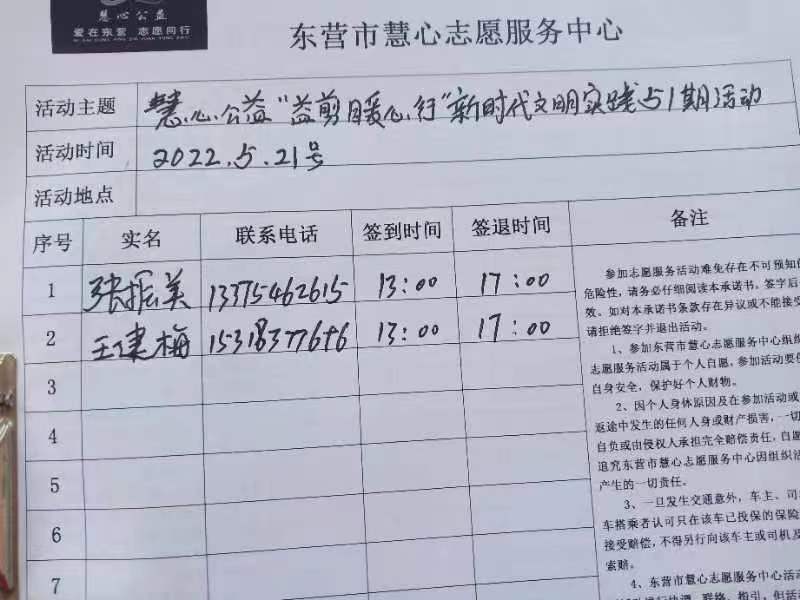 慧心公益
爱在东营 志愿同行
东营市慧心志愿服务中心
活动主题 慧心公益"益剪暖心行"新时代文明实践51期活动
活动时间 2022.5.21号
活动地点
序号 实名 联系电话 签到时间 签退时间 备注
1 张振美 13375462615 13:00 17:00
2 王建梅 15318377646 13:00 17:00
3
4
5
6
7
参加志愿服务活动难免存在不可预知的
危险性，请务必仔细阅读本承诺书。签字后
效。如对本承诺书条款存在异议或不能接受
请拒绝签字并退出活动。
1、参加东营市慧心志愿服务中心组织
志愿服务活动属于个人自愿，参加活动要保
自身安全，保护好个人财物。
2、因个人身体原因及在参加活动或
返途中发生的任何人身或财产损害，一切
自负或由侵权人承担完全赔偿责任，自愿
追究东营市慧心志愿服务中心因组织活
产生的一切责任。
3、一旦发生交通意外，车主、司
车搭乘者认可只在该车已投保的保险
接受赔偿，不得另行向该车主或司机及
索赔。
4、东营市慧心志愿服务中心活动